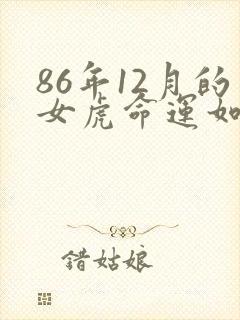 86年12月的
女虎命运如
错姑娘